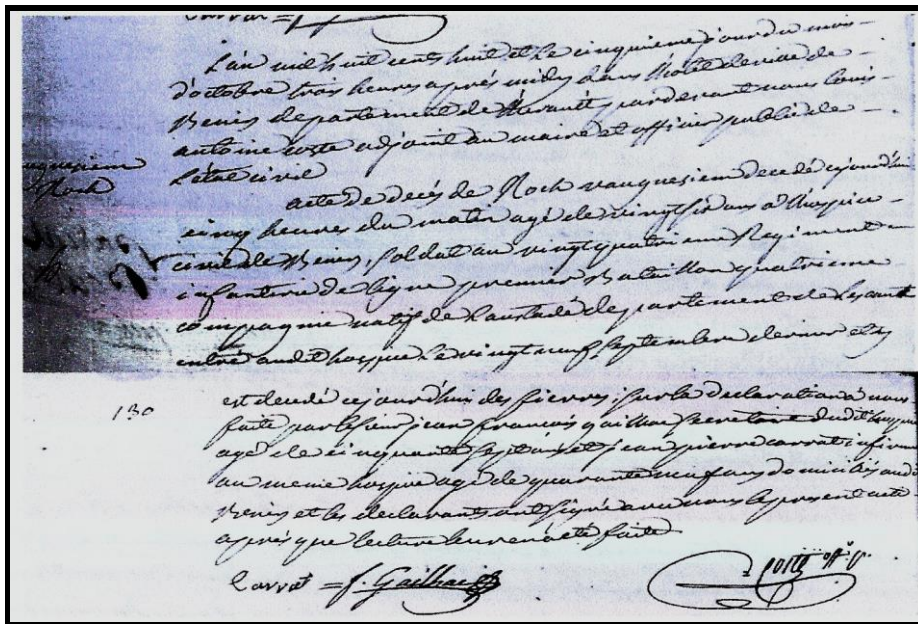 Carrat = f
L'an mil huit cents huit et le cinquieme jour du mois
d'octobre trois heures après midy dans l'hôtel de ville de
Beziers departement de l'herault pardevant nous Louis
antoine coste adjoint au maire et officier public de
L'état civil
Roch
acte de decès de Roch vauquesien decedé ce jourd'hui
cinq heures du matin agé de vingt six ans a l'hospice
civil de Beziers, soldat au vingt quatrieme Regiment
infanterie de ligne premier Bataillon quatrieme
compagnie natif de departement de
entré audit hospice le vingt neuf septembre dernier et y
130
est decedé cejourd'hui des fievres; sur la declaration a nous
faite par le sieur jean françois gailhac secretaire dudit hospice
agé de cinquante sept ans et jean pierre carrat infirmier
au meme hospice agé de quarante neuf ans domiciliés audit
Beziers et les declarants ont signé avec nous le present acte
après que lecture leur en a été faite
Carrat = f. Gailhac coste off. p.